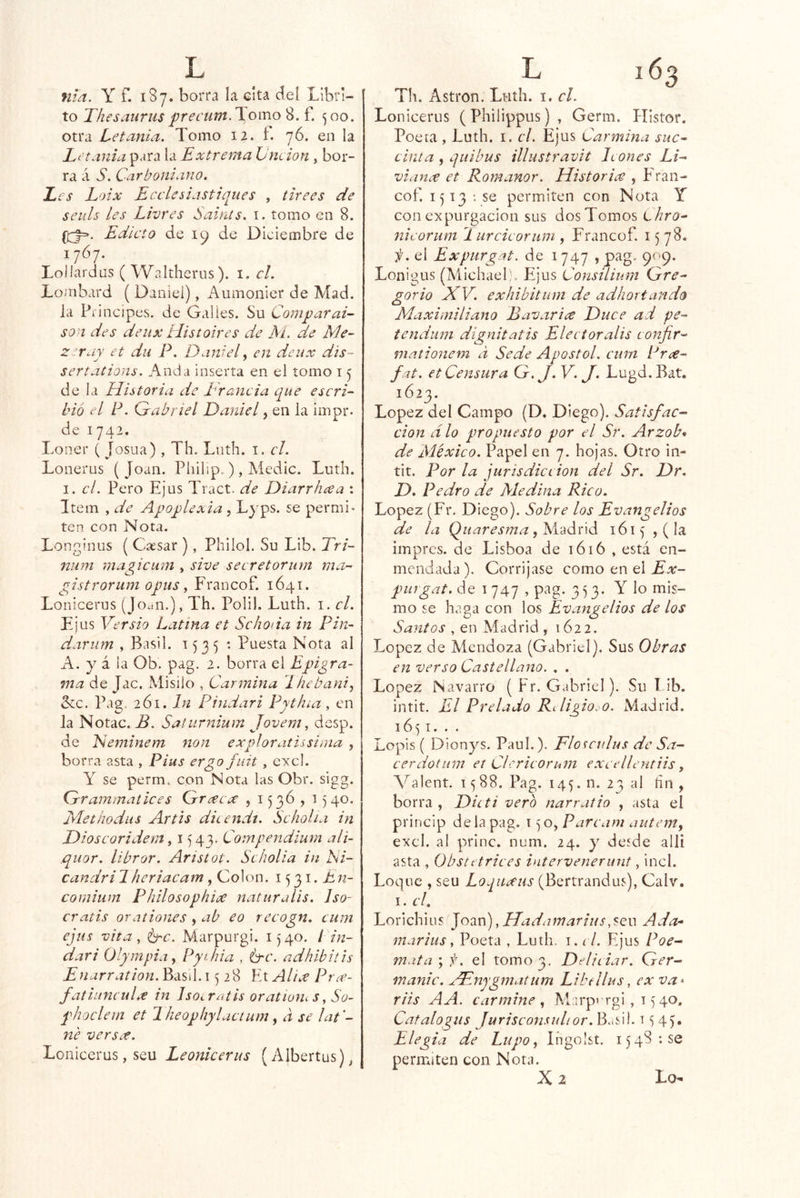 L
nia. Y f. 187. borra la cita del Libri-
to Thesaurus precum. Tomo 8. f. 500.
otra Letania. Tomo 12. f. 76. en la
Letania para la Extrema Uncion, bor-
ra á S. Carboniano.
Les Loix Ecclesiastiques , tirees de
seuls les Livres Saints. 1. tomo en 8.
Edicto de 19 de Diciembre de
1767.
Lollardus (Waltherus). 1. cl.
Lombard (Daniel), Aumonier de Mad.
la Princípes. de Galles. Su Comparai-
son des deux Histoires de M. de Me-
zeray et du P. Daniel, en deux dis-
sertations. Anda inserta en el tomo 15
de la Historia de Francia que escri-
bió el P. Gabriel Daniel, en la impr.
de 1742.
Loner (Josua), Th. Luth. 1. cl.
Lonerus (Joan. Philip.), Medic. Luth.
1. cl. Pero Ejus Tract. de Diarrhœa :
Item , de Apoplexia, Lyps. se permi-
ten con Nota.
Longinus (Cæsar), Philol. Su Lib. Tri-
num magicum , sive secretorum ma-
gistrorum opus, Francof. 1641.
Lonicerus (Joan.), Th. Polil. Luth. 1. cl.
Ejus Versio Latina et Scholia in Pin-
darum , Basil. 1535 : Puesta Nota al
A. y á la Ob. pag. 2. borra el Epigra-
ma de Jac. Misilo , Carmina Thebani,
&c. Pag. 261. In Pindari Pythia, en
la Notac. B. Saturnium Jovem, desp.
de Neminem non exploratissima ,
borra asta , Pius ergo fuit , excl.
Y se perm. con Nota las Obr. sigg.
Grammatices Græcæ , 1536, 1540.
Methodus Artis dicendi. Scholia in
Dioscoridem, 1543. Compendium ali-
quor. libror. Aristot. Scholia in Ni-
candri Theriacam, Colon. 1531. En-
comium Philosophiæ naturalis. Iso-
cratis orationes , ab eo recogn. cum
ejus vita , &c. Marpurgi. 1540. Pin-
dari Olympia, Pythia , &c. adhibitis
Enarration. Basil. 1528 Et Aliæ Præ-
fatiunculæ in Isocratis orationes, So-
phoclem et Theophylactum, à se lat'-
nè versæ.
Lonicerus, seu Leonicerus (Albertus),
L 163
Th. Astron. Luth. 1. cl.
Lonicerus (Philippus) , Germ. Histor.
Poeta , Luth. 1. cl. Ejus Carmina suc-
cinta , quibus illustravit Icones Li-
vianæ et Romanor. Historiæ , Fran-
cof. 1513 : se permiten con Nota Y
con expurgacion sus dos Tomos Chro-
nicorum Turcicorum , Francof. 1578.
℣. el Expurgat. de 1747 , pag. 909.
Lonigus (Michael). Ejus Consilium Gre-
gorio XV. exhibitum de adhortando
Maximiliano Bavariæ Duce ad pe-
tendum dignitatis Electoralis confir-
mationem á Sede Apostol. cum Præ-
fat. et Censura G. J. V. J. Lugd. Bat.
1623.
Lopez del Campo (D. Diego). Satisfac-
cion á lo propuesto por el Sr. Arzob.
de México. Papel en 7. hojas. Otro in-
tit. Por la jurisdiccion del Sr. Dr.
D. Pedro de Medina Rico.
Lopez (Fr. Diego). Sobre los Evangelios
de la Quaresma, Madrid 1615 , (la
impres. de Lisboa de 1616 , está en-
mendada). Corrijase como en el Ex-
purgat. de 1747 , pag. 353. Y lo mis-
mo se haga con los Evangelios de los
Santos , en Madrid , 1622.
Lopez de Mendoza (Gabriel). Sus Obras
en verso Castellano. . .
Lopez Navarro (Fr. Gabriel). Su Lib.
intit. El Prelado Religioso. Madrid.
1651. . .
Lopis (Dionys. Paul.). Flosculus de Sa-
cerdotum et Clericorum excellentiis,
Valent. 1588. Pag. 145. n. 23 al fin ,
borra , Dicti verò narratio , asta el
princip de la pag. 150, Parcam autem,
excl. al princ. num. 24. y desde alli
asta , Obstetrices intervenerunt , incl.
Loque , seu Loquæus (Bertrandus), Calv.
1. cl.
Lorichius Joan), Hadamarius, seu Ada-
marius, Poeta , Luth. 1. cl. Ejus Poe-
mata ; ℣. el tomo 3. Deliciar. Ger-
manic. Ænygmatum Libellus, ex va-
riis AA. carmine , Marpurgi , 1540.
Catalogus Jurisconsultor. Basil. 1545.
Elegia de Lupo, Ingolst. 1548 : se
permiten con Nota.
X 2 Lo-